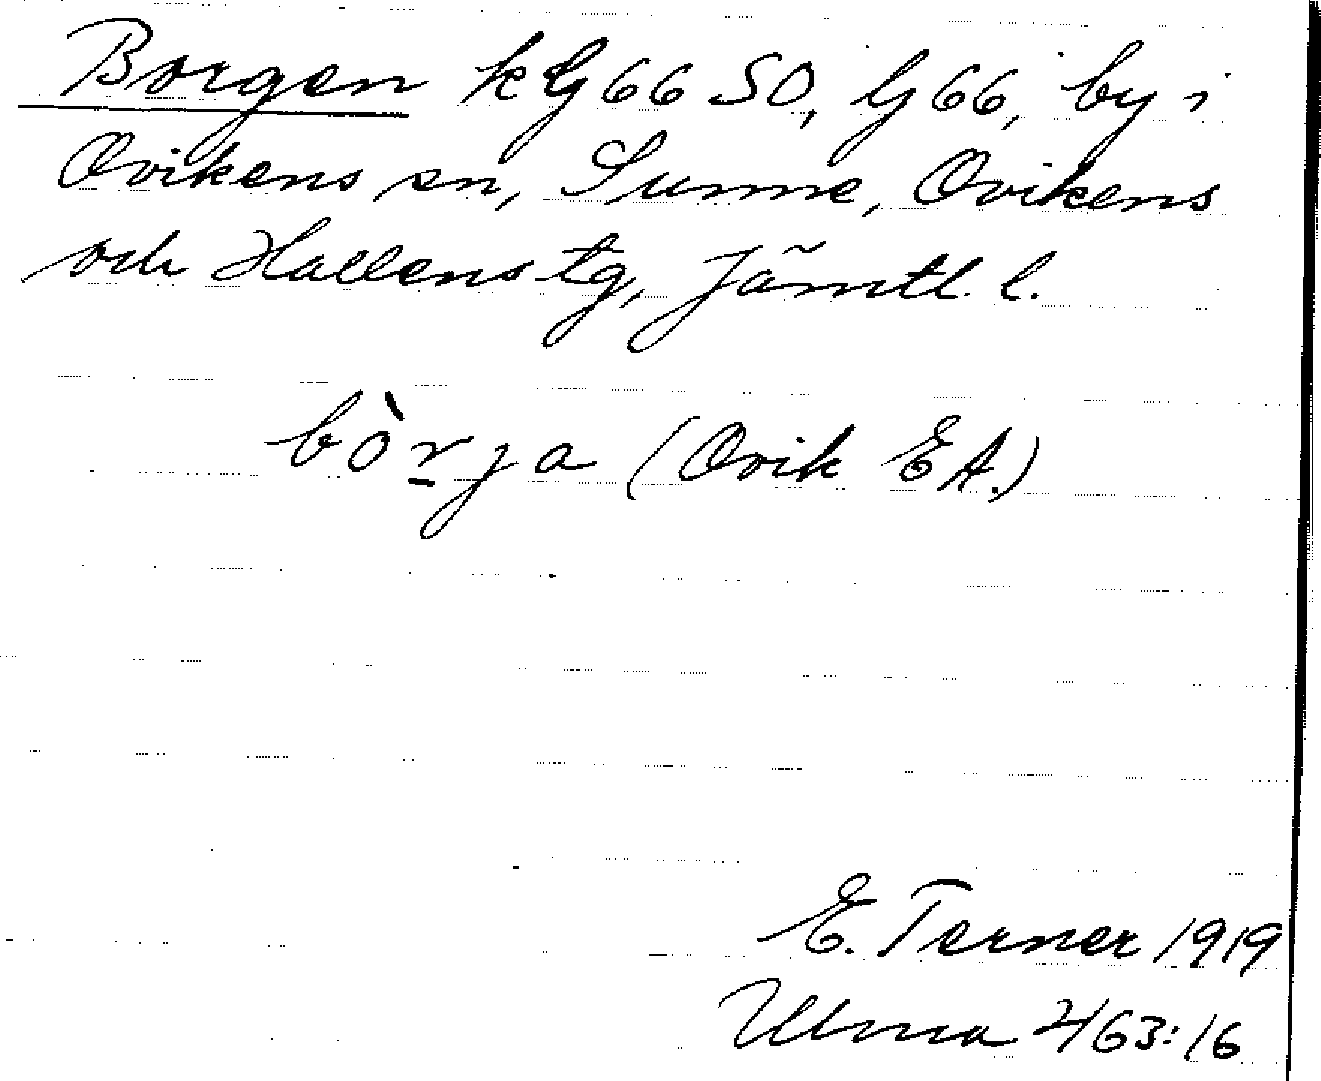 Borgen kG66 SO, G66, by i
Ovikens sn, Sunne, Ovikens
och Hallens tg, Jämtl. l.
bòr̲ja (Ovik EA.)
E. Terner 1919
Ulma 2/63:16